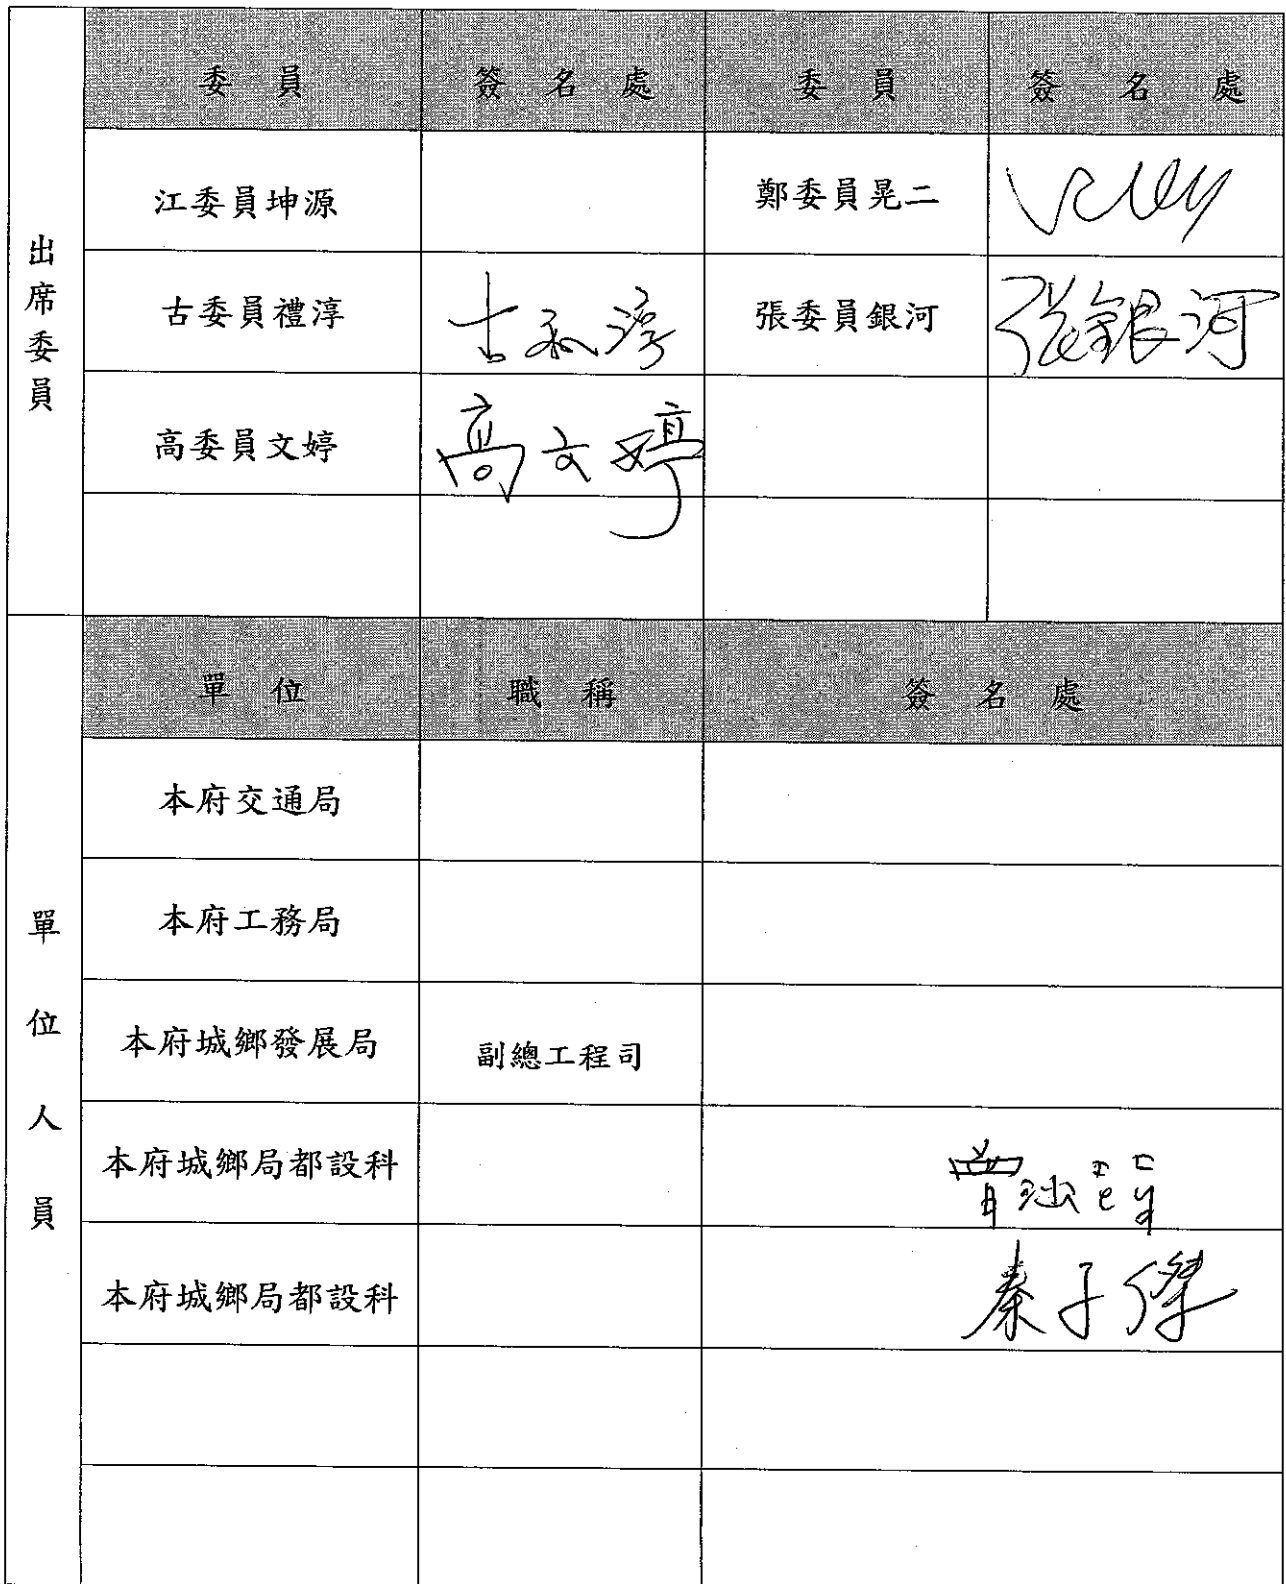 出席委員
委員 簽名處 委員 簽名處
江委員坤源 鄭委員晃二
古委員禮淳 古禮淳 張委員銀河 張銀河
高委員文婷 高文婷
單位人員
單位 職稱 簽名處
本府交通局
本府工務局
本府城鄉發展局 副總工程司
本府城鄉局都設科
本府城鄉局都設科 秦子傑